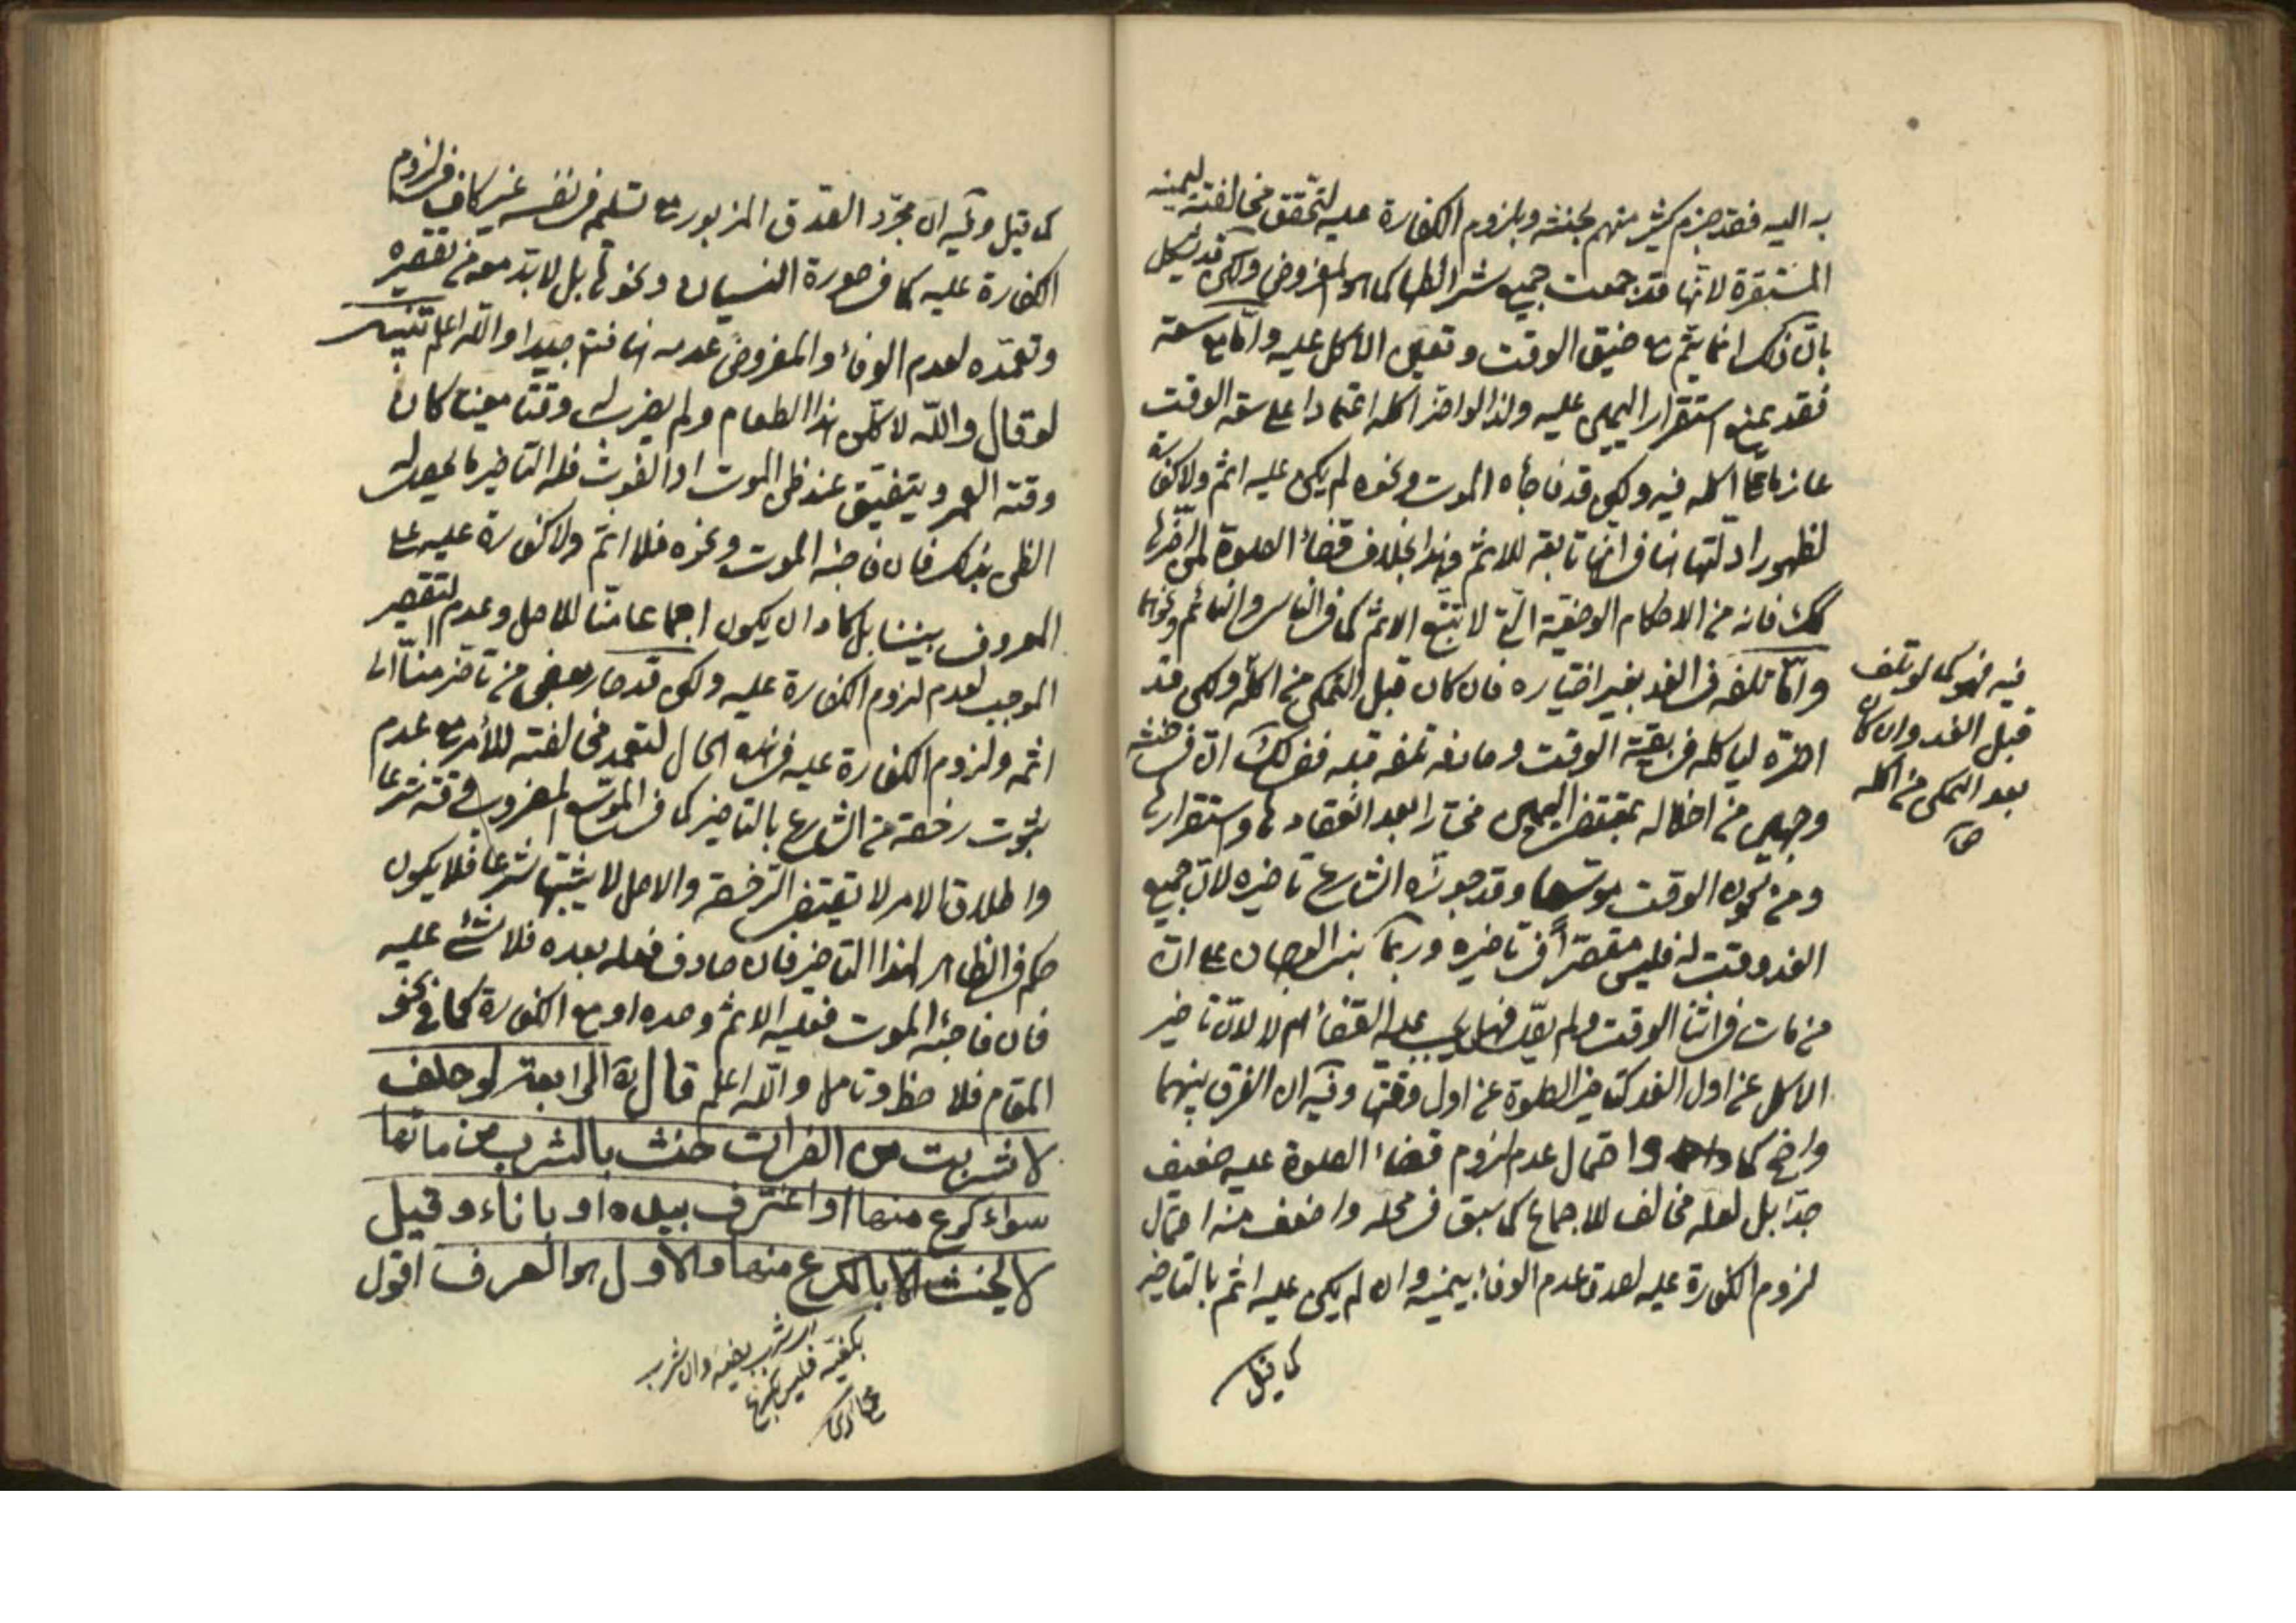 به اليه فقد جزم كثير منهم بحنثه وبلزوم الكفارة عليه لتحقق مخالفته ليمينه
المستقرة لانها قد جمعت جميع شرائطها كما هو المفروض ولكن قد يشكل
بان ذلك انما يتم مع ضيق الوقت وتعين الاكل عليه واما مع سعته
فقد يمنع استقرار اليمين عليه ولذا لو اخر اكله اعتمادا على سعة الوقت
عازما على اكله فيه ولكن قد فاجأه الموت ونحوه لم يكن عليه اثم ولا كفارة
لظهور ادلتها هنا في انها تابعة للاثم وهذا بخلاف قضاء الصلوة لمن اخرها
كك فانه من الاحكام الوضعية التي لا تتبع الاثم كما في الناسي والنائم ونحوهما
واما تلفه في الغد بغير اختياره فان كان قبل التمكن من اكله ولكن قد
اخره لياكله في بقية الوقت ومانعه تلفه قبله ففي لك ان في حنثه
وجهين من اخلاله بمقتضى اليمين مختارا بعد انعقادها واستقرارها
ومن كون الوقت موسعا وقد جوز له الشارع تاخيره لان جميع
الغد وقت له فليس مقصرا في تاخيره وربما بنى الوجهان على ان
من مات في اثناء الوقت ولم يصل فهل يجب عليه القضاء ام لا لان تاخير
الاكل عن اول الغد كتاخير الصلوة عن اول وقتها وفيه ان الفرق بينهما
واضح كما واحتمال عدم لزوم قضاء الصلوة عليه ضعيف
جدا بل لعله مخالف للاجماع كما سبق في محله واضعف منه احتمال
لزوم الكفارة عليه لصدق عدم الوفاء بيمينه وان لم يكن عليه اثم بالتاخير
كما قيل
فيه فهو كما لو تلف
قبل الغد وان كان
بعد التمكن من اكله
صح
كما قيل وفيه ان مجرد الصدق المزبور مع تسليمه في نفسه غير كاف في لزوم
الكفارة عليه كما في صورة النسيان ونحوها بل لا بد معه من تقصيره
وتعمده لعدم الوفاء والمفروض عدمه هنا فتامل جيدا والله اعلم تنبيه
لو قال والله لاكلن هذا الطعام ولم يضرب له وقتا معينا كان
وقته العمر ويتضيق عند ظن الموت او الفوت فله التاخير ما لم يحصل له
الظن بذلك فان فاجئه الموت ونحوه فلا اثم ولا كفارة عليه على
المعروف بيننا بل كاد ان يكون اجماعا منا للاصل وعدم التقصير
الموجب لعدم لزوم الكفارة عليه ولكن قد صار بعض من تاخر منا الى
اثمه ولزوم الكفارة عليه في هذه الحال لتعمد مخالفته للأمر مع عدم
ثبوت رخصة من الشارع بالتاخير كما في الموسع المضروب وقته شرعا
واطلاق الامر لا يقتضي الرخصة والاصل لا يثبتها شرعا فلا يكون
حكم في الظاهر لهذا التاخير فان صادف فعله بعده فلا شئ عليه
فان فاجئه الموت فعليه الاثم وحده او مع الكفارة كما في نحو
المقام فلاحظ وتامل والله اعلم قال ره الرابعة لو حلف
لا شربت من الفرات حنث بالشرب من مائها
سواء كرع منها او اغترف بيده او باناء وقيل
لا يحنث الا بالكرع منها والاول هو العرف اقول
شرب بفيه وان شرب
بكفيه فليس بكرع